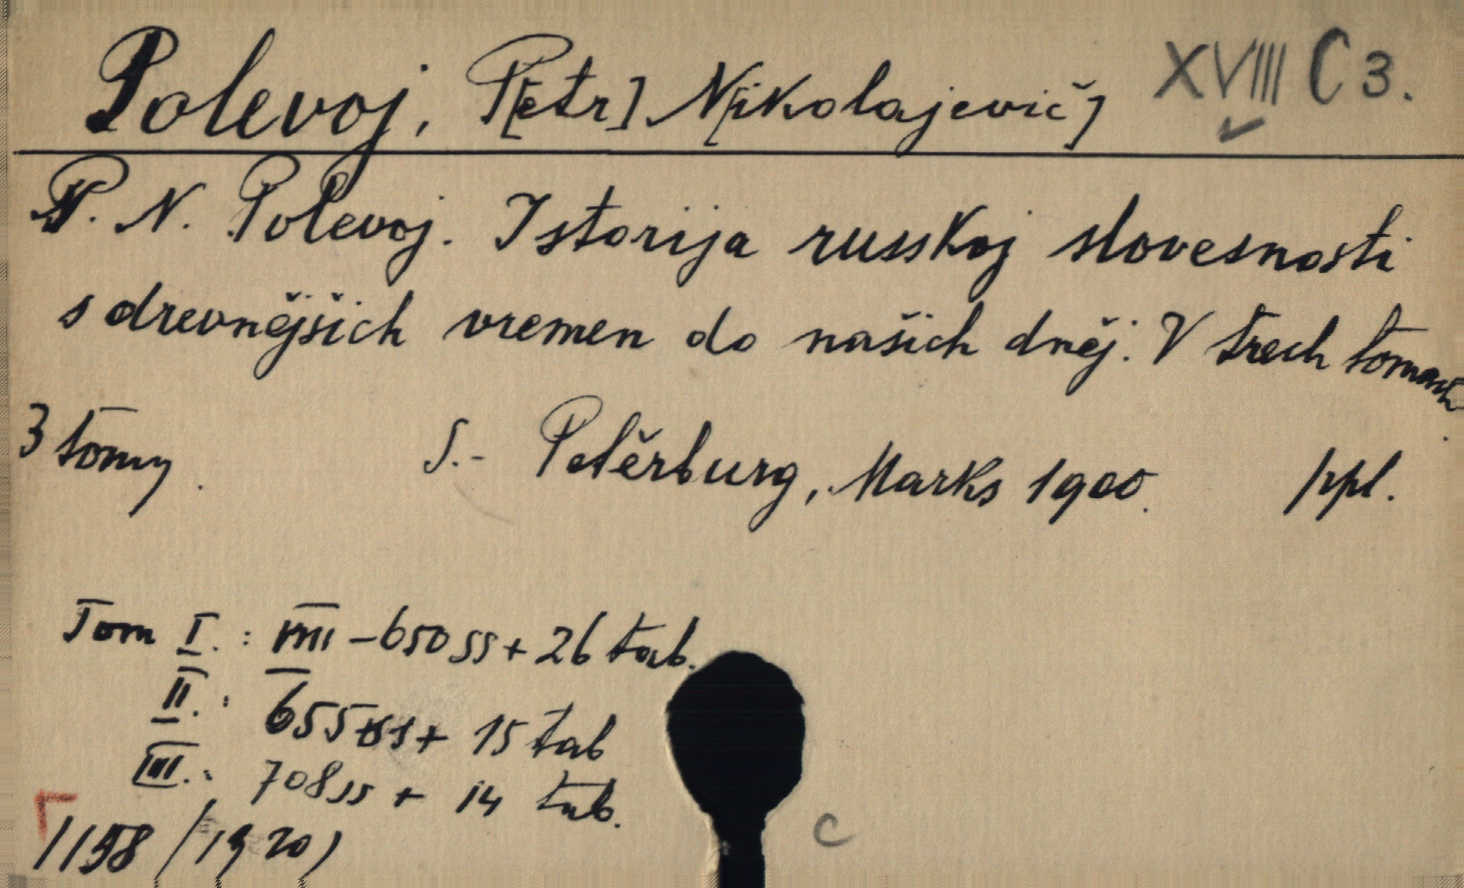 Polevoj, P[etr] N[ikolajevič] XVIII C 3.
P. N. Polevoj. Istorija russkoj slovesnosti
s drevnějšich vremen do našich dněj. V trech tomach.
3 tomy. S.- Petěrburg, Marks 1900. ppl.
Tom I. : VIII - 650 ss + 26 tab.
II. : 655 ss + 15 tab
III. : 708 ss + 14 tab.
1158 /1920/
C